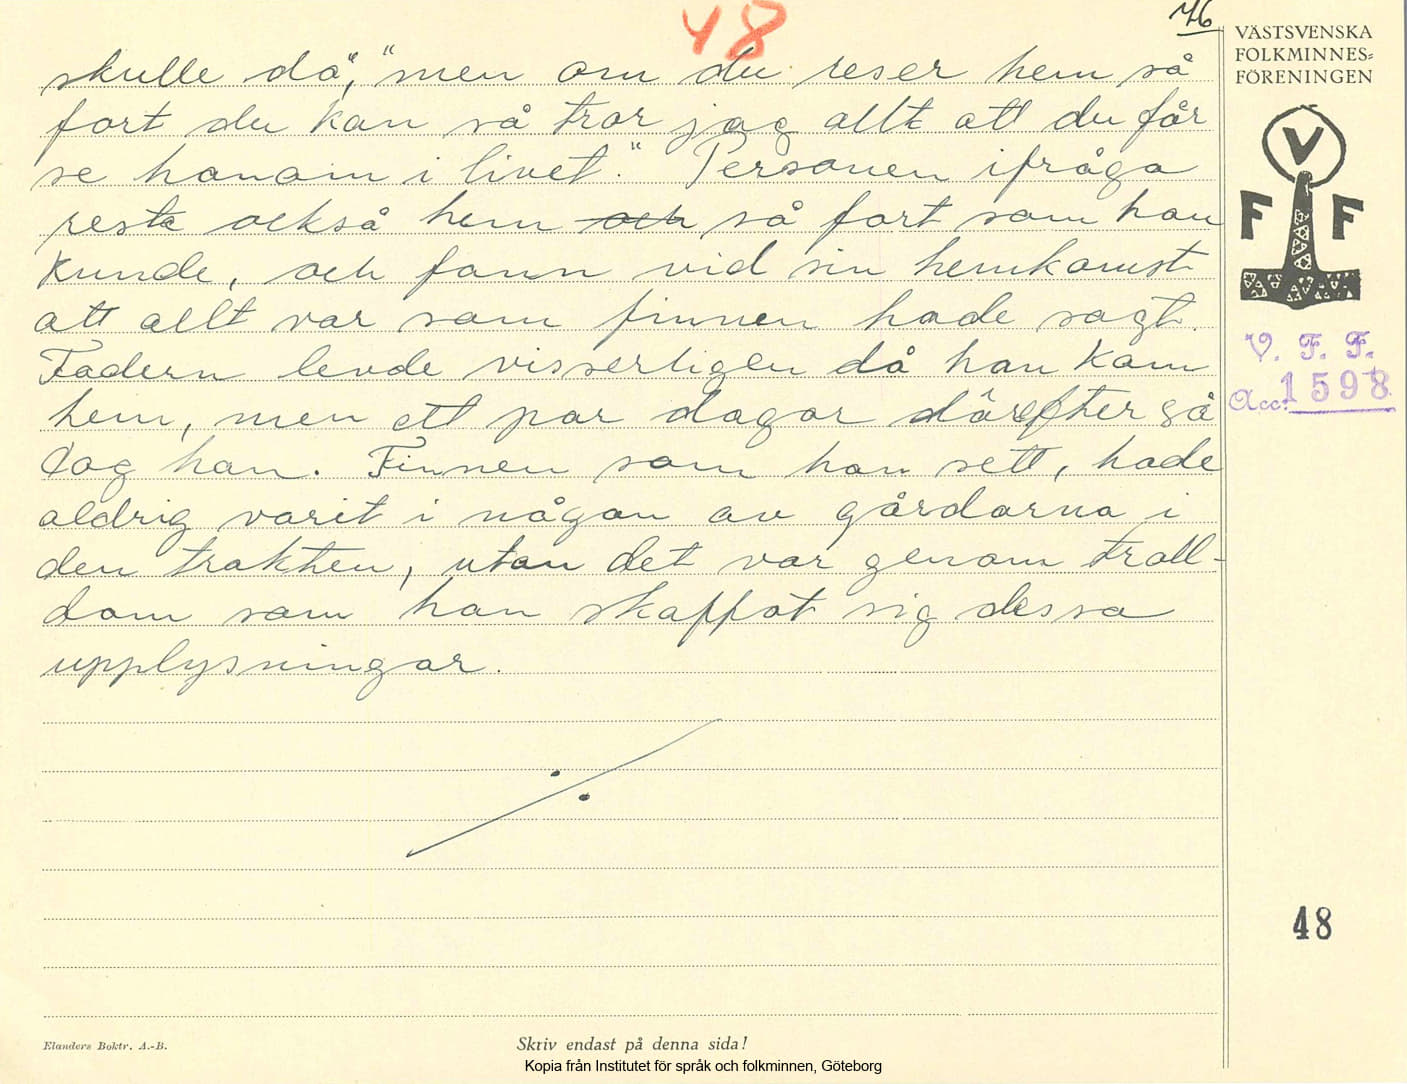 48
76
VÄSTSVENSKA
FOLKMINNES=
FÖRENINGEN
V
F F
V. F. F.
Acc. 1598
skulle då", "men om du reser hem så
fort du kan så tror jag allt att du får
se honom i livet." Personen ifråga
reste också hem och så fort som han
kunde, och fann vid sin hemkomst
att allt var som finnen hade sagt.
Fadern levde visserligen då han kom
hem, men ett par dagar därefter så
dog han. Finnen som han sett, hade
aldrig varit i någon av gårdarna i
den trakten, utan det var genom troll-
dom som han skaffat sig dessa
upplysningar.
48
Elanders Boktr. A.-B.
Skriv endast på denna sida!
Kopia från Institutet för språk och folkminnen, Göteborg